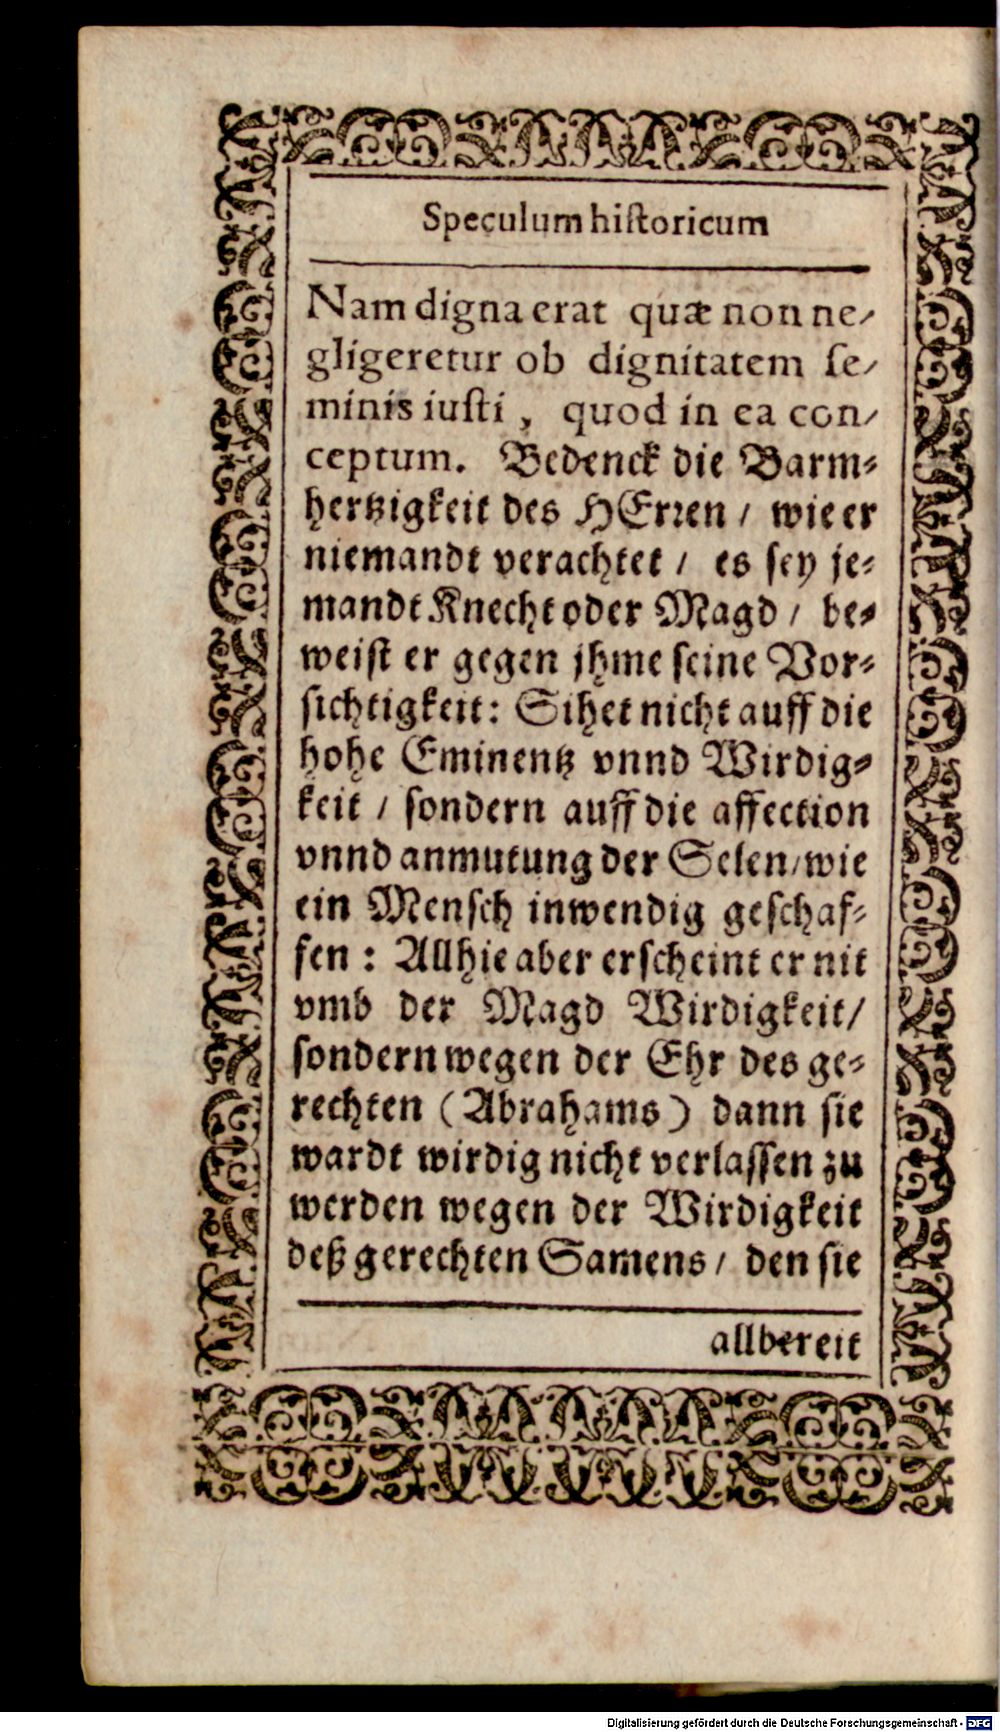 Speculum historicum
Nam digna erat quæ non ne-
gligeretur ob dignitatem se-
minis iusti, quod in ea con-
ceptum. Bedenck die Barm-
hertzigkeit des HErren / wie er
niemandt verachtet / es sey je-
mandt Knecht oder Magd / be-
weist er gegen jhme seine Vor-
sichtigkeit: Sihet nicht auff die
hohe Eminentz vnnd Wirdig-
keit / sondern auff die affection
vnnd anmutung der Selen / wie
ein Mensch inwendig geschaf-
fen : Allhie aber erscheint er nit
vmb der Magd Wirdigkeit /
sondern wegen der Ehr des ge-
rechten (Abrahams) dann sie
wardt wirdig nicht verlassen zu
werden wegen der Wirdigkeit
deß gerechten Samens / den sie
allbereit
Digitalisierung gefördert durch die Deutsche Forschungsgemeinschaft - DFG